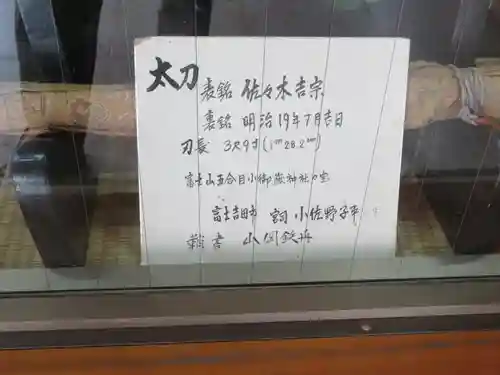 太刀 表銘 佐々木吉宗
裏銘 明治19年7月吉日
刃長 3尺9寸(1m28.2cm)
富士山五合目小御嶽神社の宝
富士吉田市 詞 小佐野子平
鞘書 山岡鉄舟